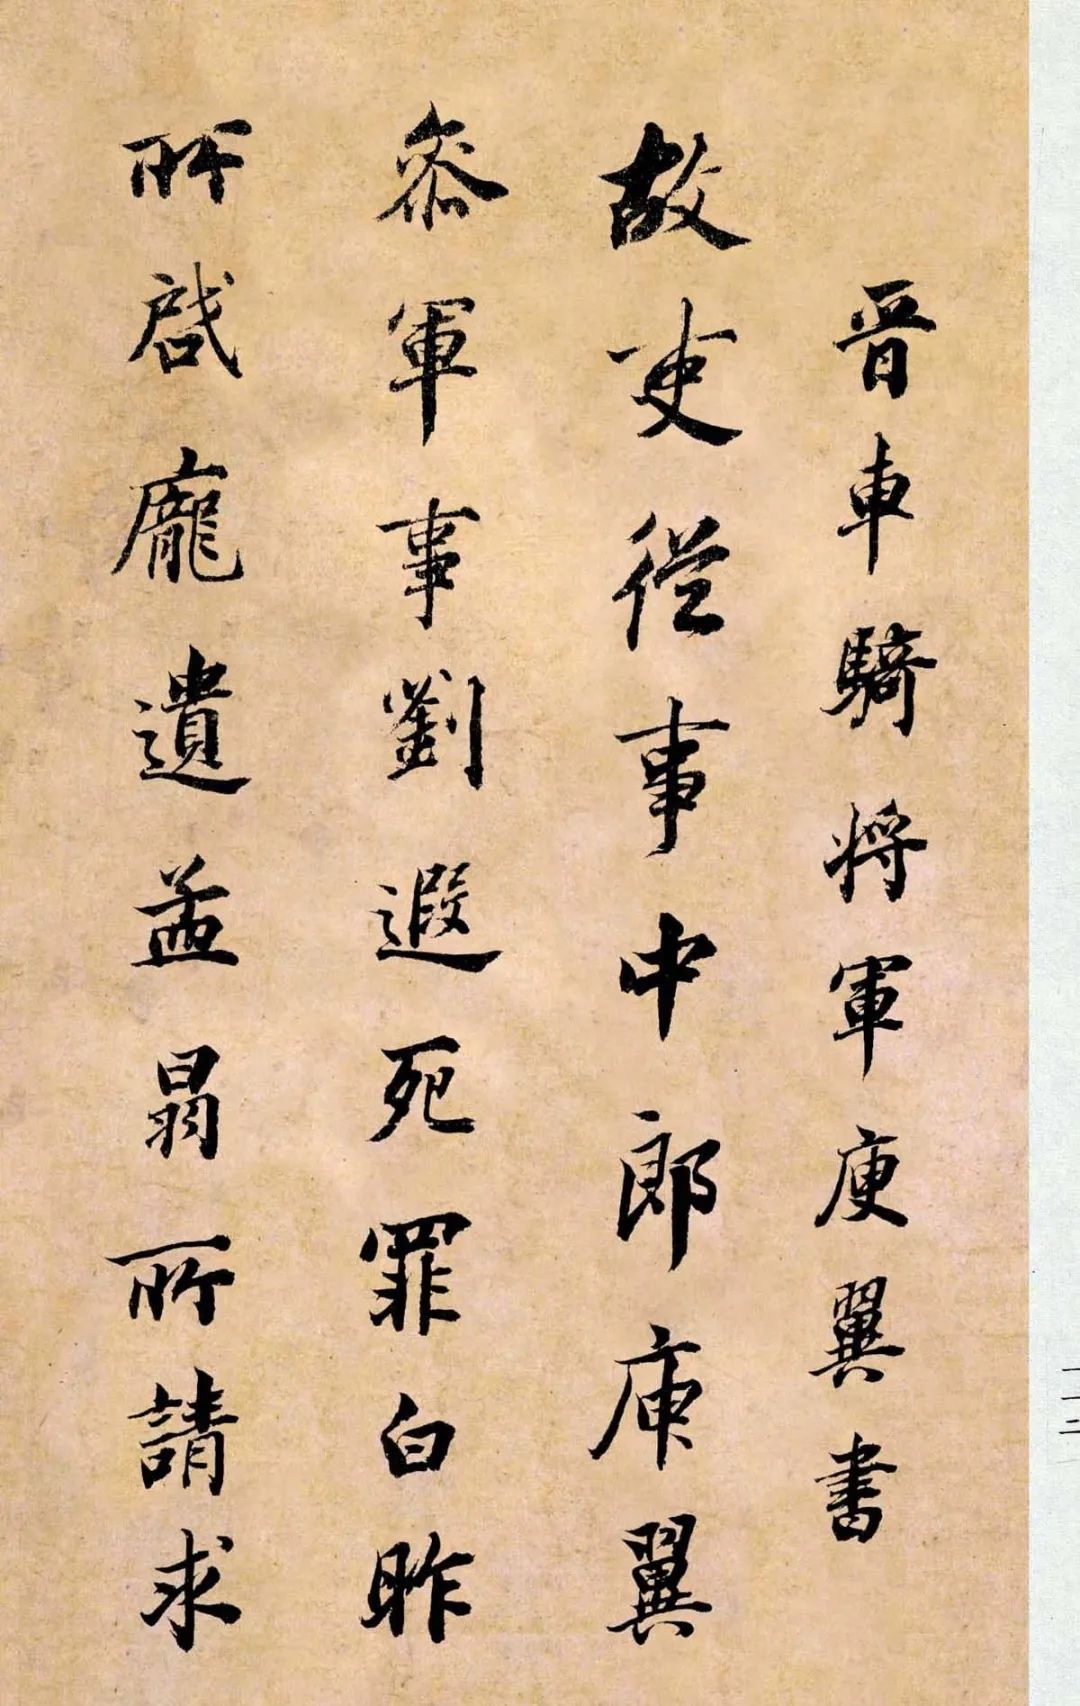 晉車騎將軍庾翼書
故吏從事中郎庾翼
參軍事劉遐死罪白昨
所啟龐遺孟昺所請求
一一二